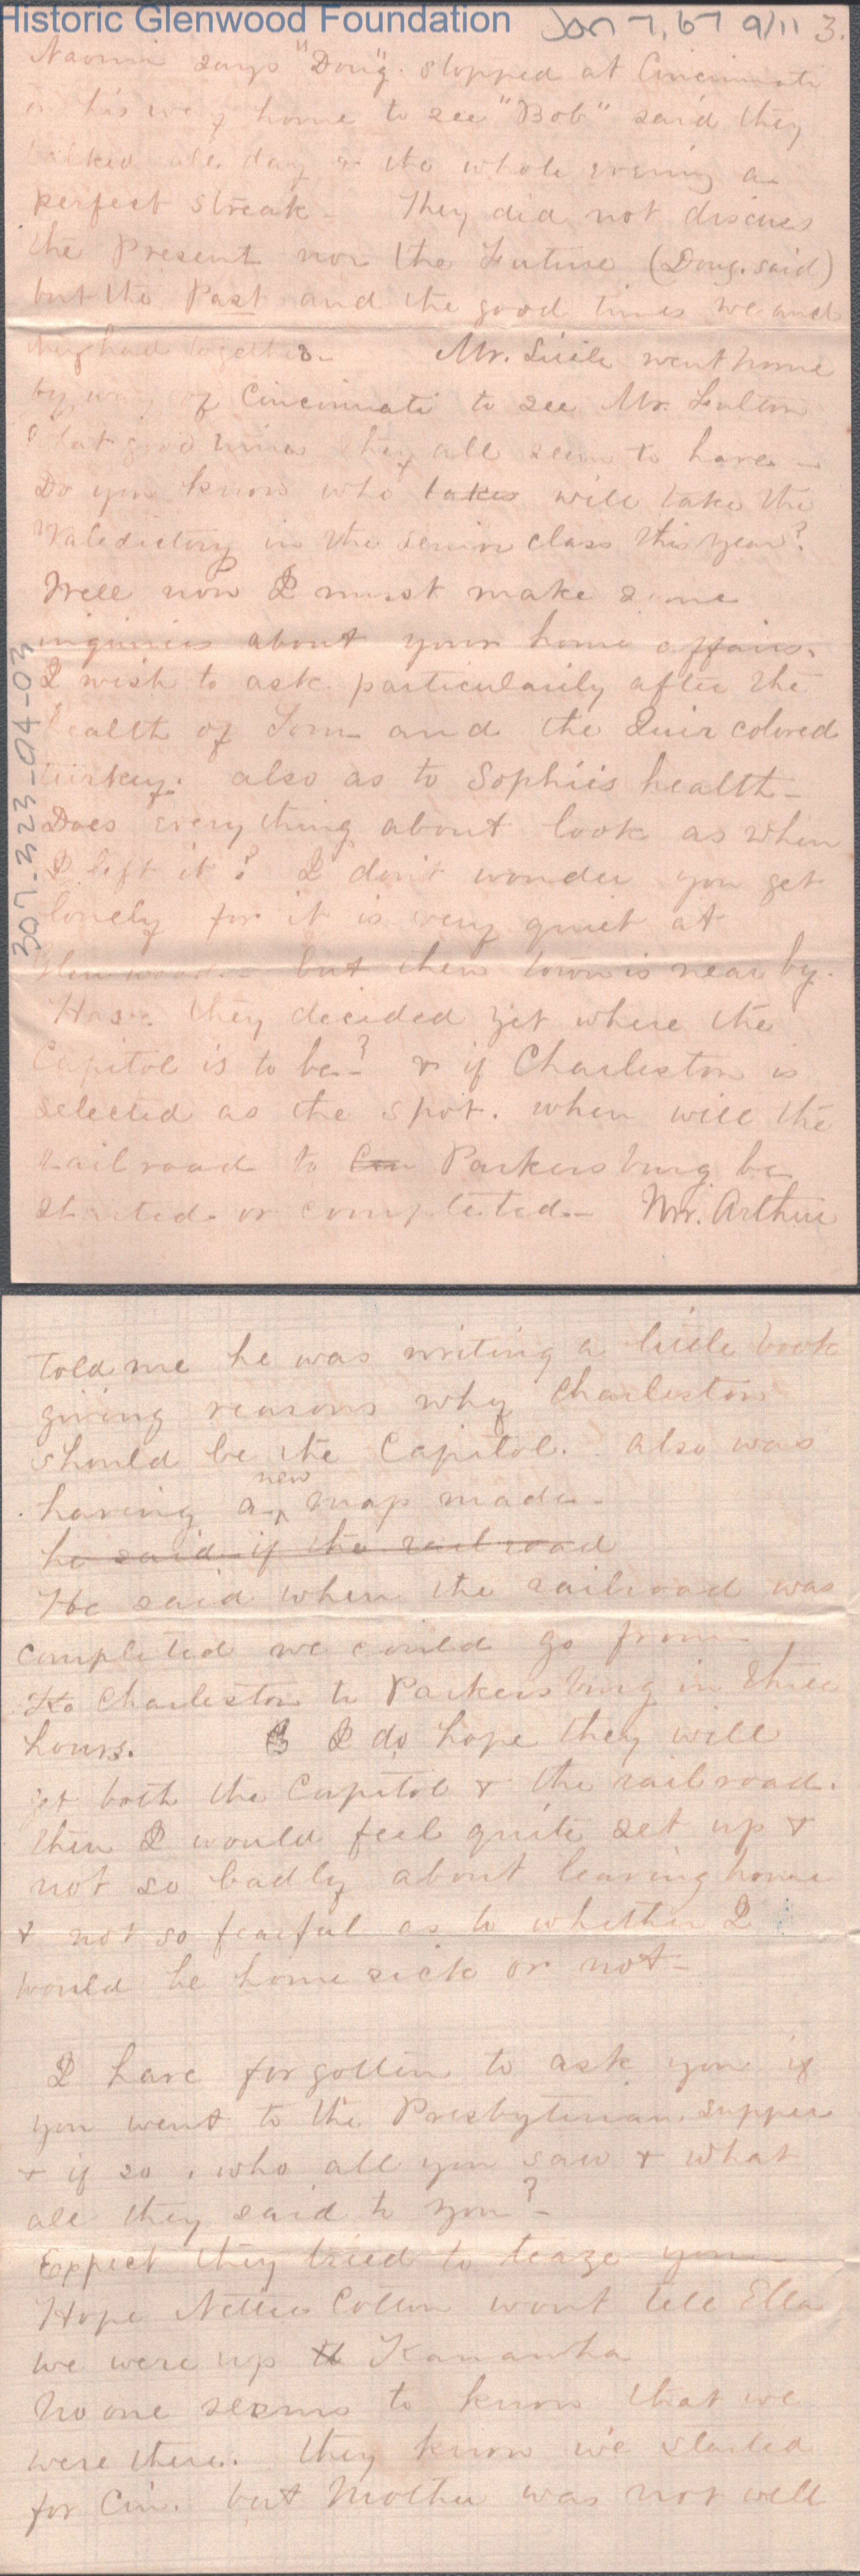 Historic Glenwood Foundation
Jan 7, 67 9/11 3.
307.323-04-03
Naomi says "Doug". stopped at Cincinnati
on his way home to see "Bob" said they
talked all day & the whole evening a
perfect streak - They did not discuss
the Present nor the Future (Doug. said)
but the Past and the good times we and
they had together - Mr. Lisile went home
by way of Cincinnati to see Mr. Fulton
What good times they all seem to have -
Do you know who takes will take the
Valedictory in the senior class this year?
Well now I must make some
inquiries about your home affairs.
I wish to ask particularily after the
health of Tom and the Quir colored
turkey. also as to Sophies health -
Does everything about look as when
I left it? I don't wonder you get
lonely for it is very quiet at
Glenwood - but then town is near by.
Have they decided yet where the
Capitol is to be -? & if Charleston is
selected as the spot. when will the
railroad to Cin Parkersburg be
started or completed - Mr. Arthur
told me he was writing a little book
giving reasons why Charleston
should be the Capitol. Also was
having a new map made -
he said if the rail road
He said when the railroad was
completed we could go from
Ka Charleston to Parkersburg in three
hours. I do hope they will
get both the Capitol & the railroad.
then I would feel quite set up &
not so badly about leaving home
& not so fearful as to whether I
would be home sick or not -
I have forgotten to ask you if
you went to the Presbyterian supper
& if so, who all you saw & what
all they said to you? -
Expect they tried to teaze you -
Hope Nettie Cotton wont tell Ella
we were up to Kanawha
No one seems to know that we
were there. they know we started
for Cin. but Mother was not well